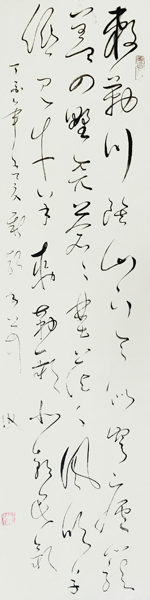 敕勒川陰山下天似穹廬籠
蓋四野天蒼々野茫々風吹草
低見牛羊敕勒歌北朝民歌